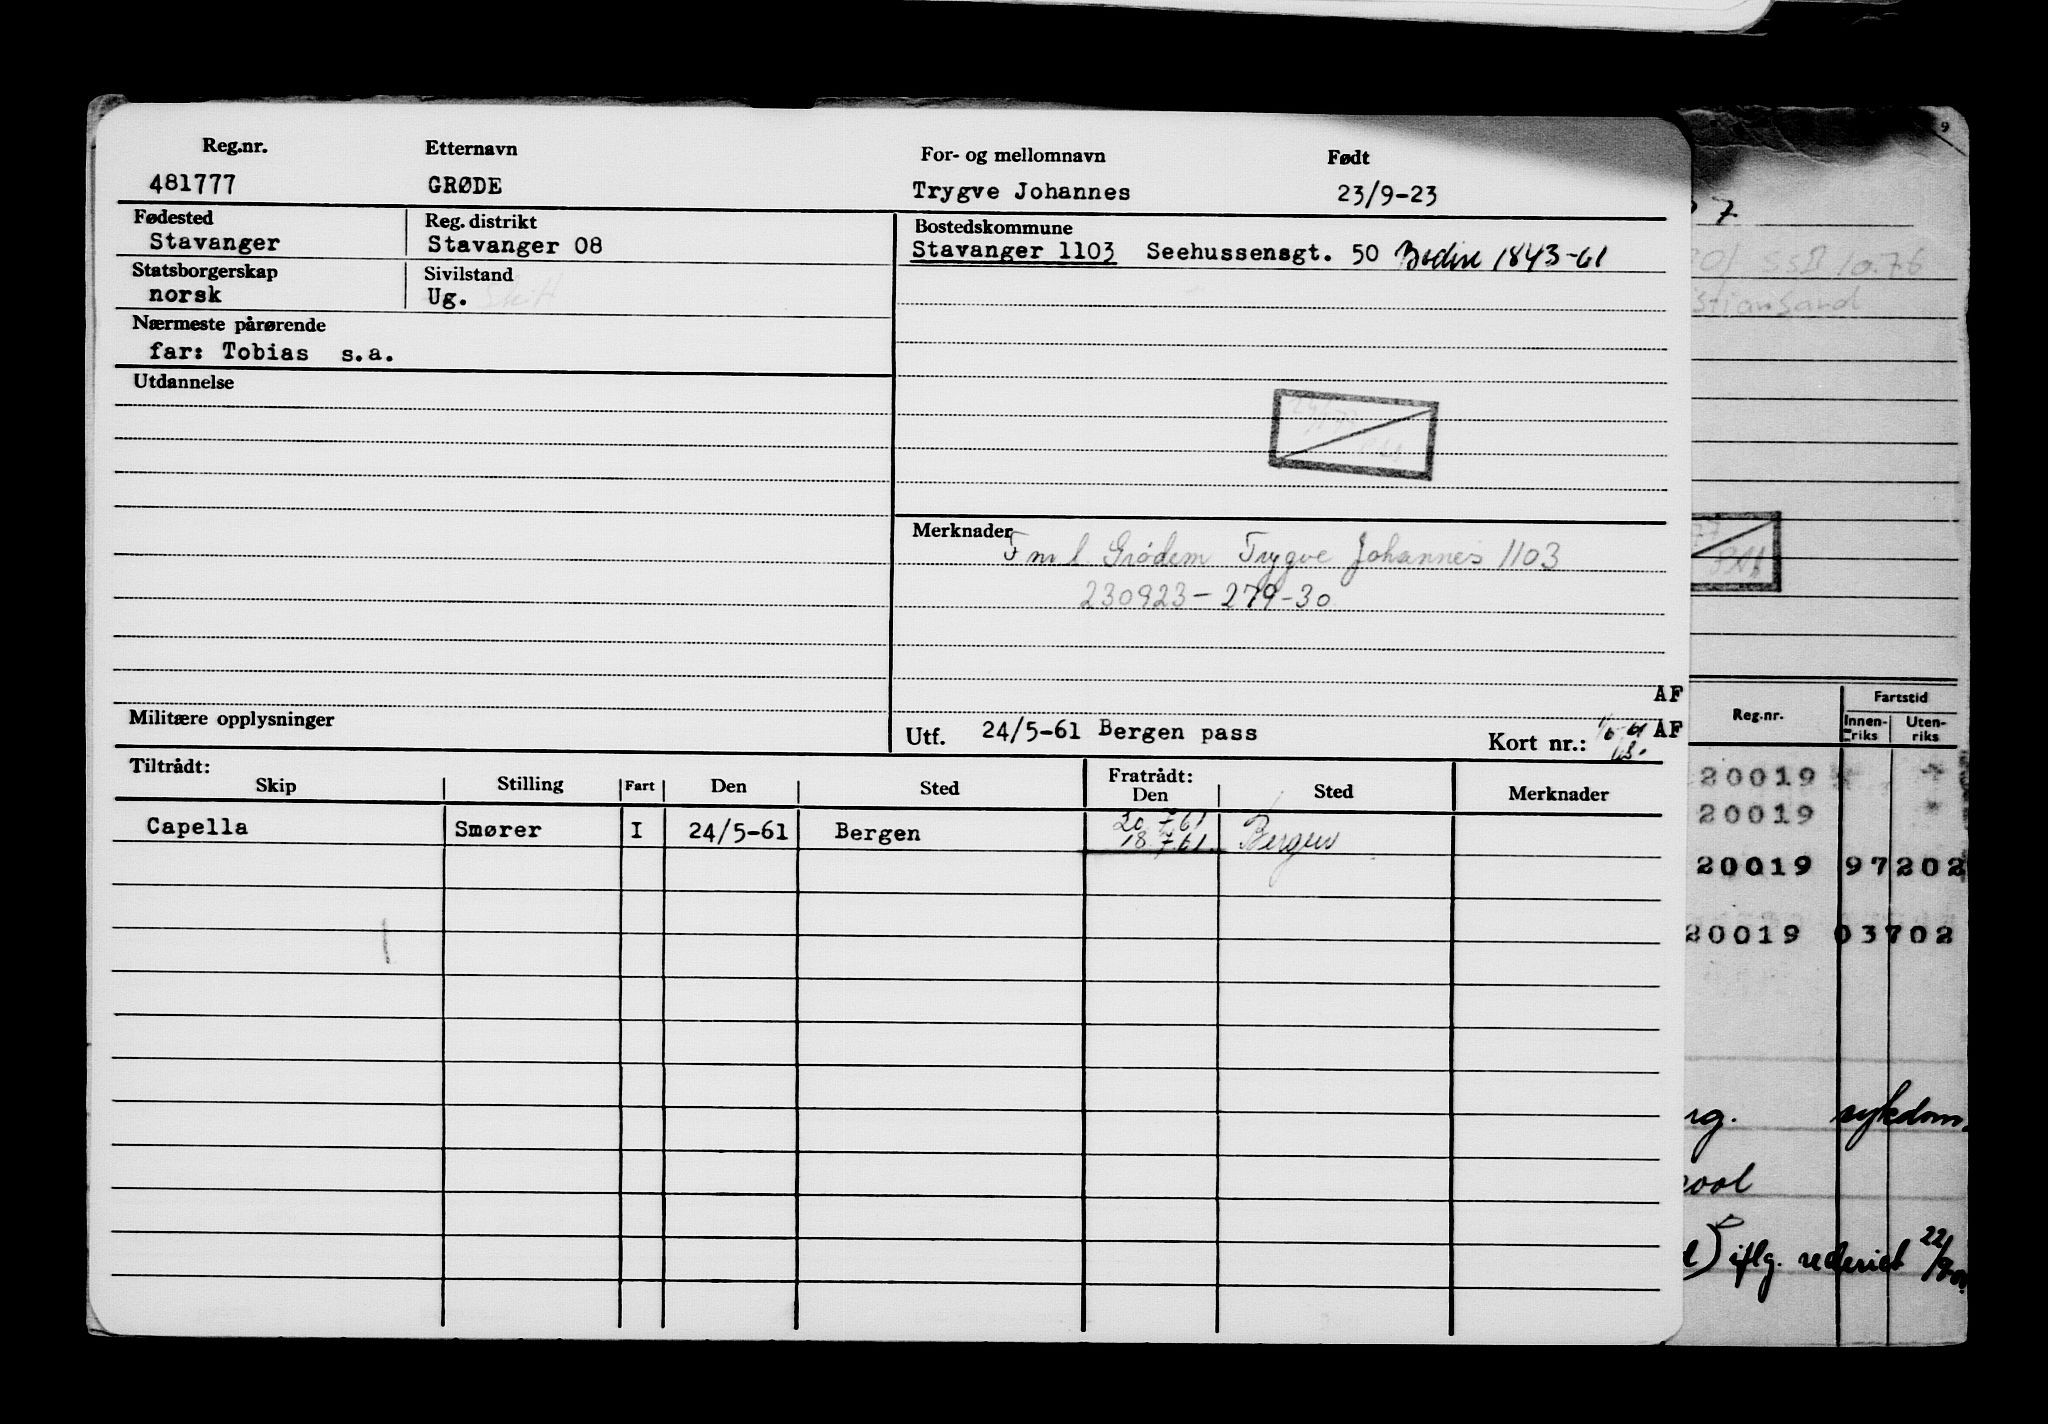 Reg.nr. Etternavn For- og mellomnavn Født
481777 GRØDE Trygve Johannes 23/9-23
Fødested Reg. distrikt Bostedskommune
Stavanger Stavanger 08 Stavanger 1103 Seehussensgt. 50 1843-61
Statsborgerskap Sivilstand
norsk Ug.
Nærmeste pårørende
far: Tobias s.a.
Utdannelse
Merknader
F m l Grödem Trygve Johannes 1103
230923-279-30
AF
Militære opplysninger
Utf. 24/5-61 Bergen pass Kort nr.: AF
Tiltrådt: Fratrådt:
Skip Stilling Fart Den Sted Den Sted Merknader
20 7.61
Capella Smører I 24/5-61 Bergen 18.7.61. Bergen
9
7
10.76
Fartstid
Reg.nr. Innen-riks Uten-riks
20019
20019
20019 97202
20019 03702
sykdom.
iflg. rederiet